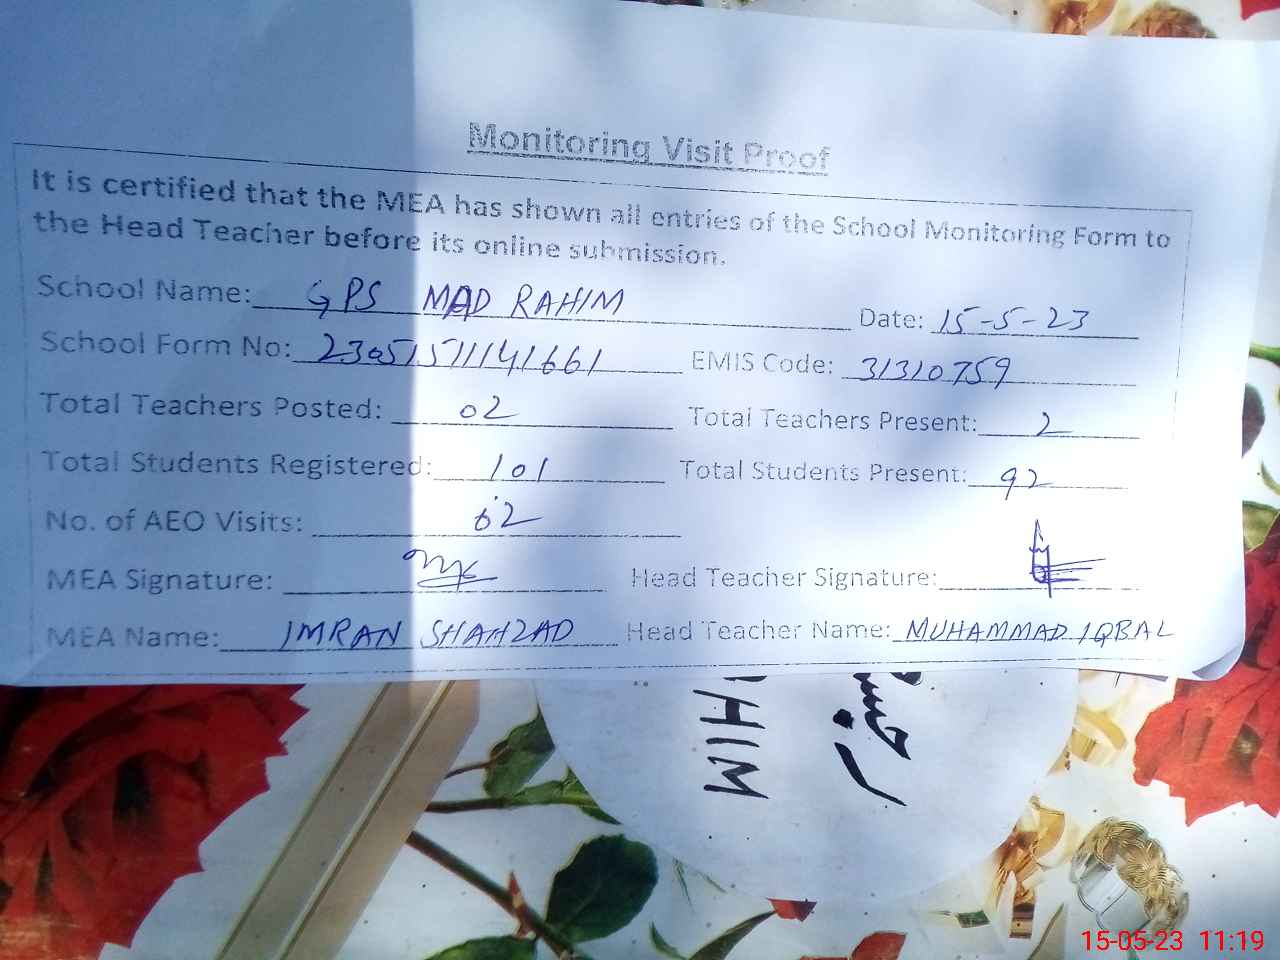 Monitoring Visit Proof
It is certified that the MEA has shown all entries of the School Monitoring Form to
the Head Teacher before its online submission.
School Name: GPS MAD RAHIM Date: 15-5-23
School Form No: 23051571141661 EMIS Code: 31310759
Total Teachers Posted: 02 Total Teachers Present: 2
Total Students Registered: 101 Total Students Present: 92
No. of AEO Visits: 02
MEA Signature: Head Teacher Signature:
MEA Name: IMRAN SHAHZAD Head Teacher Name: MUHAMMAD IQBAL
HIM
15-05-23 11:19